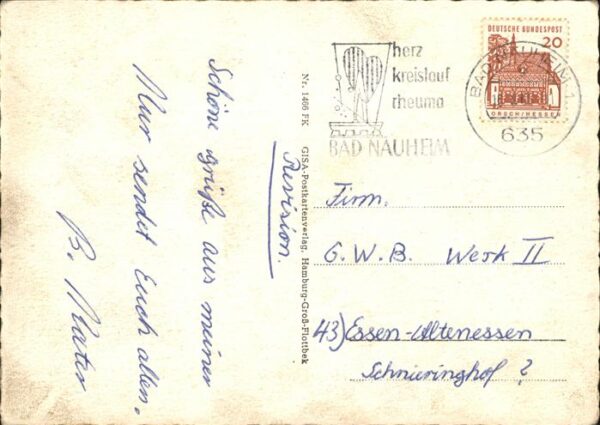 Schöne Grüße aus meiner
Kur sendet Euch allen.
B. Mater
Revision.
Nr. 1466 FK GISA-Postkartenverlag, Hamburg-Groß-Flottbek
herz
kreislauf
rheuma
BAD NAUHEIM
DEUTSCHE BUNDESPOST
20
LORSCH/HESSEN
BAD NAUHEIM 1
635
Firm.
G. W. B. Werk II
43) Essen-Altenessen
Schnieringhof ?